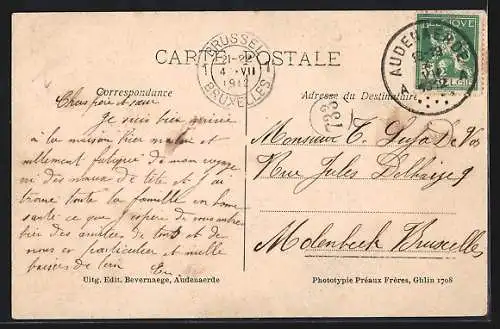 CARTE POSTALE
BRUSSEL
21-22
4 VII
1912
BRUXELLES
AUDENAERDE
Correspondance
Adresse du Destinataire
733
Cher père et sœur
Je suis bien arrivée
à la maison hier matin et
nullement fatiguée de mon voyage
ni des maux de tête et j'ai
trouvé toute la famille en bonne
santé ce que j'espère de vous
bien des amitiés de tous et de
nous en particulier et mille
baisers de loin
Monsieur T. De Vos
Rue Jules Delhaize 9
Molenbeek Bruxelles
Uitg. Edit. Bevernaege, Audenaerde
Phototypie Préaux Frères, Ghlin 1708